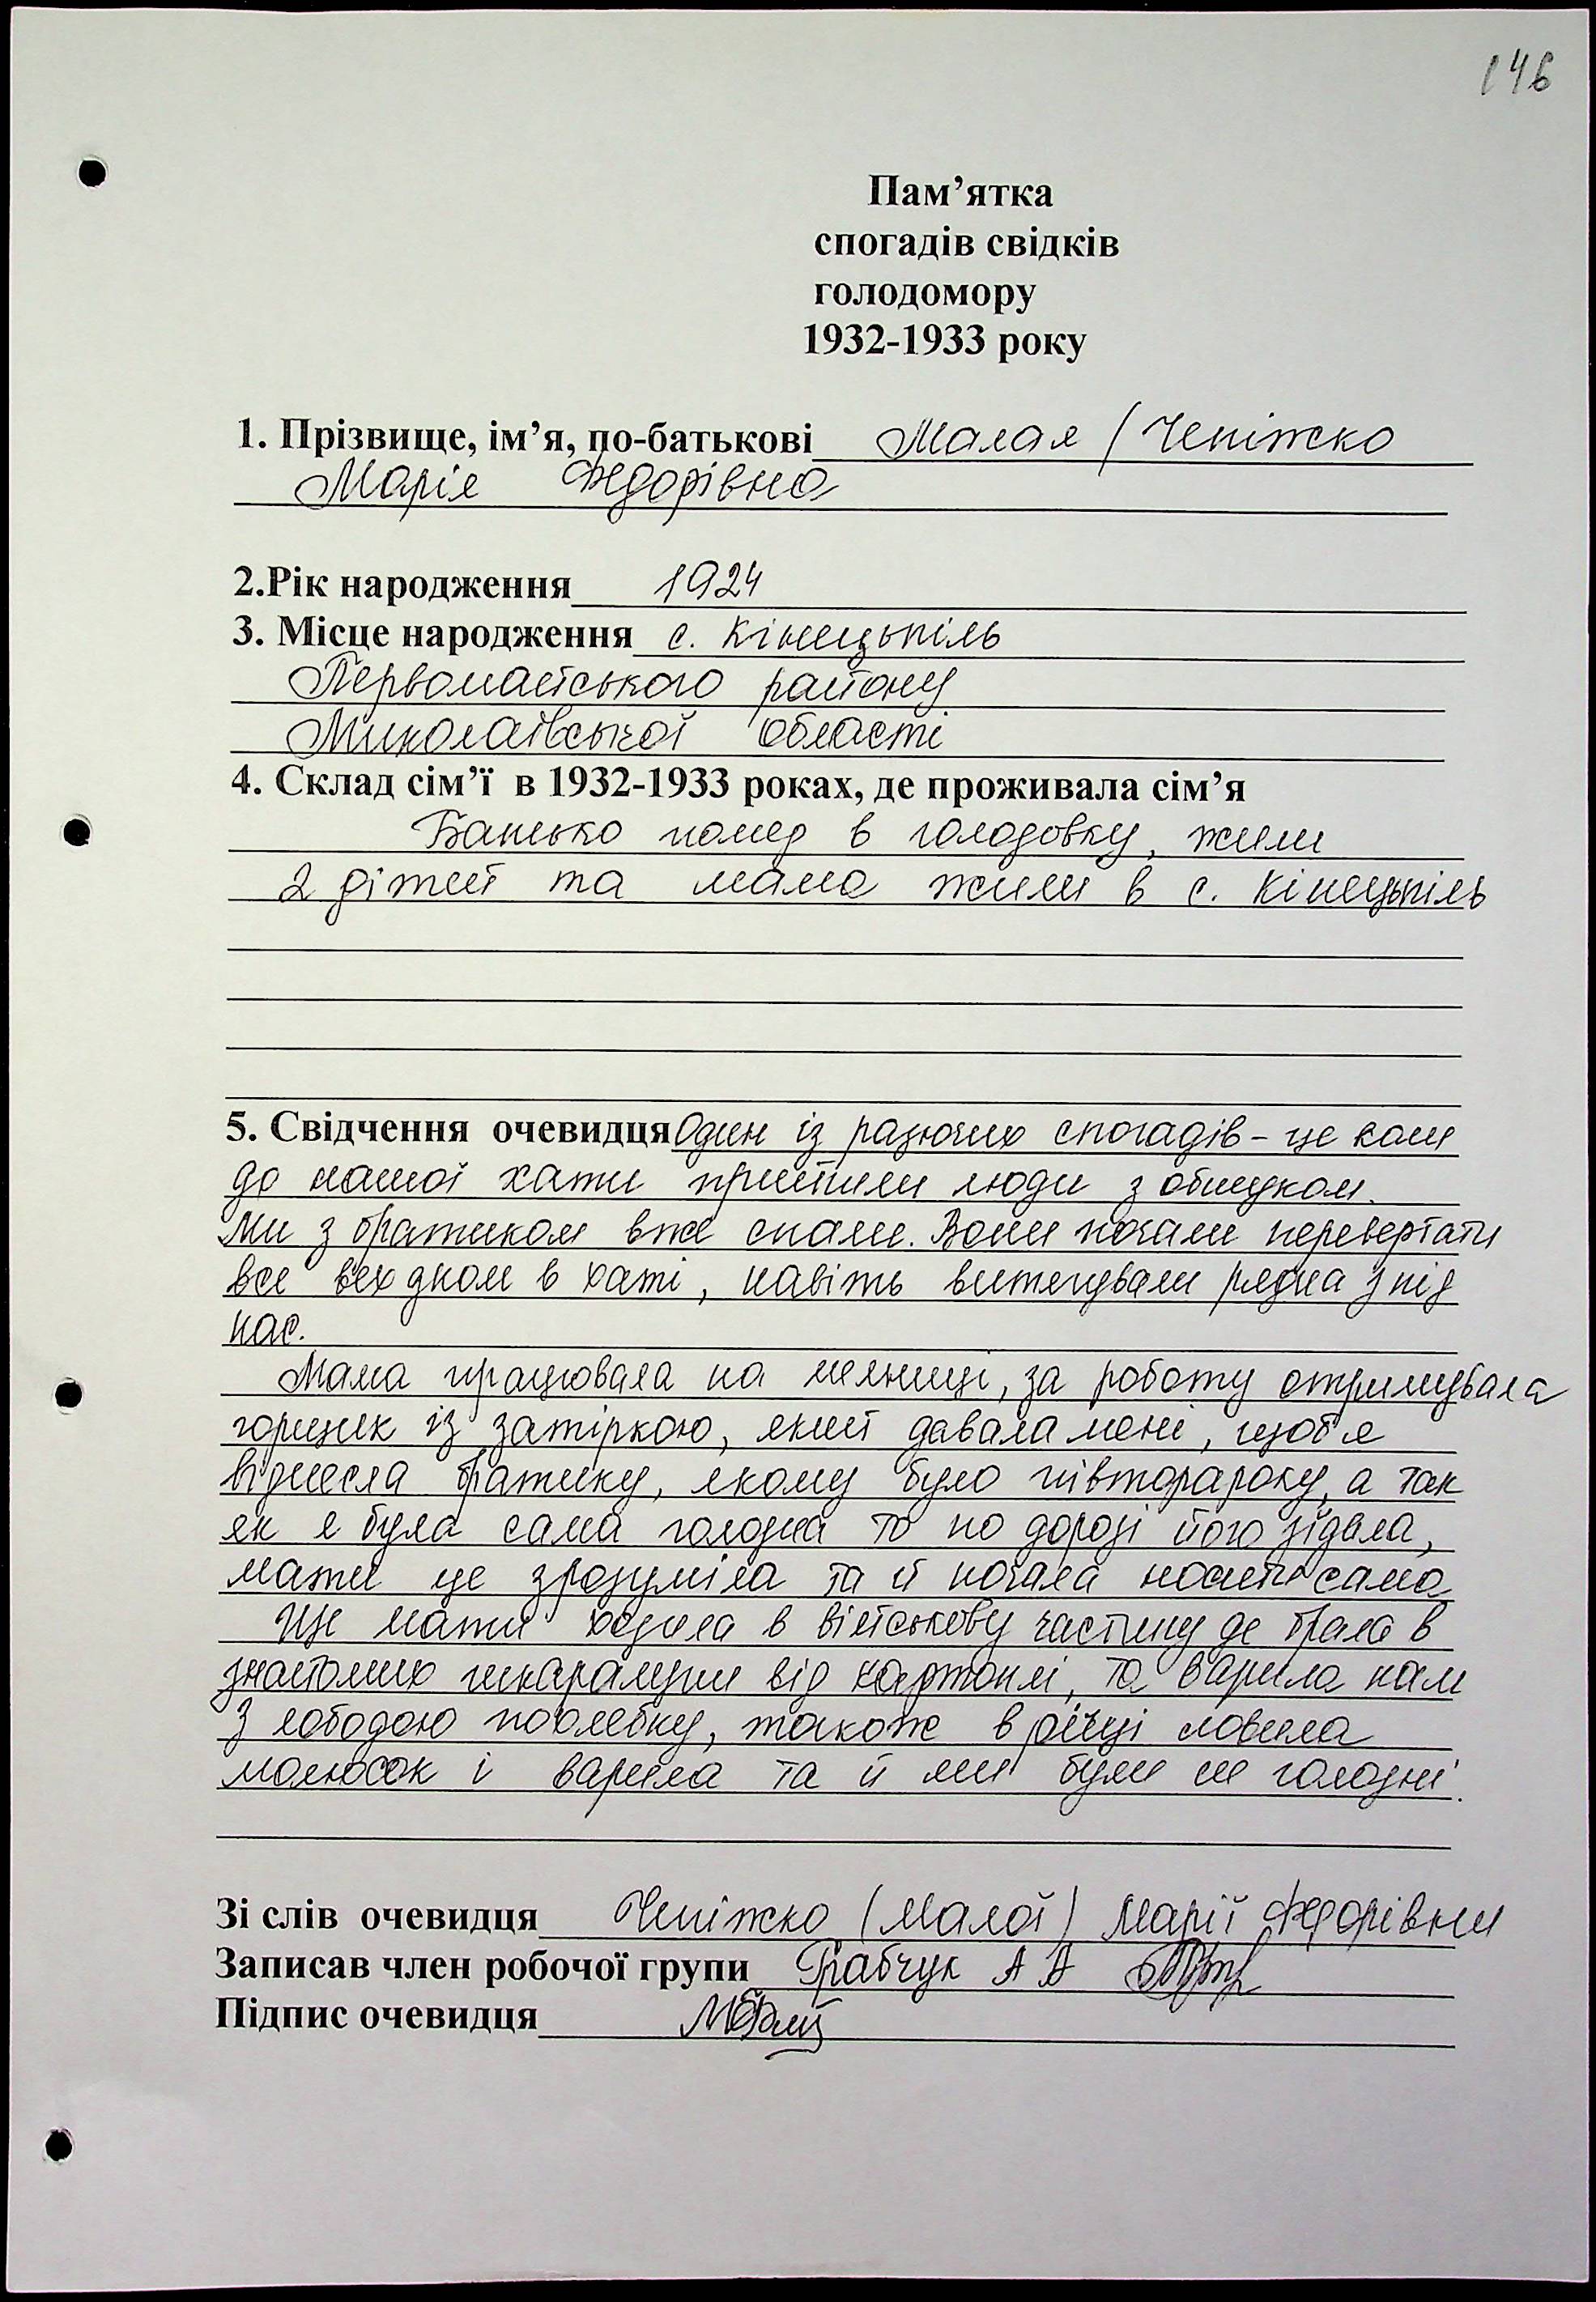 146
Пам’ятка
спогадів свідків
голодомору
1932-1933 року
1. Прізвище, ім’я, по-батькові Малая / Чепіжко
Марія Федорівна
2.Рік народження 1924
3. Місце народження с. Кінецьпіль
Первомайського району
Миколаївської області
4. Склад сім’ї в 1932-1933 роках, де проживала сім’я
Батько помер в голодовку, жили
2 дітей та мама жили в с. Кінецьпіль
5. Свідчення очевидця Один із разючих спогадів - це коли
до нашої хати прийшли люди з обшуком.
Ми з братиком вже спали. Вони почали перевертати
все вех дном в хаті, навіть витягували рядна з під
нас.
Мама працювала на мелниці, за роботу отримувала
горщик із затіркою, який давала мені, щоб я
віднесла братику, якому було півторароку, а так
як я була сама голодна то по дорозі його зїдала,
мати це зрозуміла та й почала носити сама
Ще мати ходила в військову частину де брала в
знайомих шкаралущи від картоплі, та варила нам
з лободою похлебку, також в річці ловила
молюсок і варила та й ми були не голодні.
Зі слів очевидця Чепіжко (Малої) Марії Федорівни
Записав член робочої групи Грабчук А А
Підпис очевидця